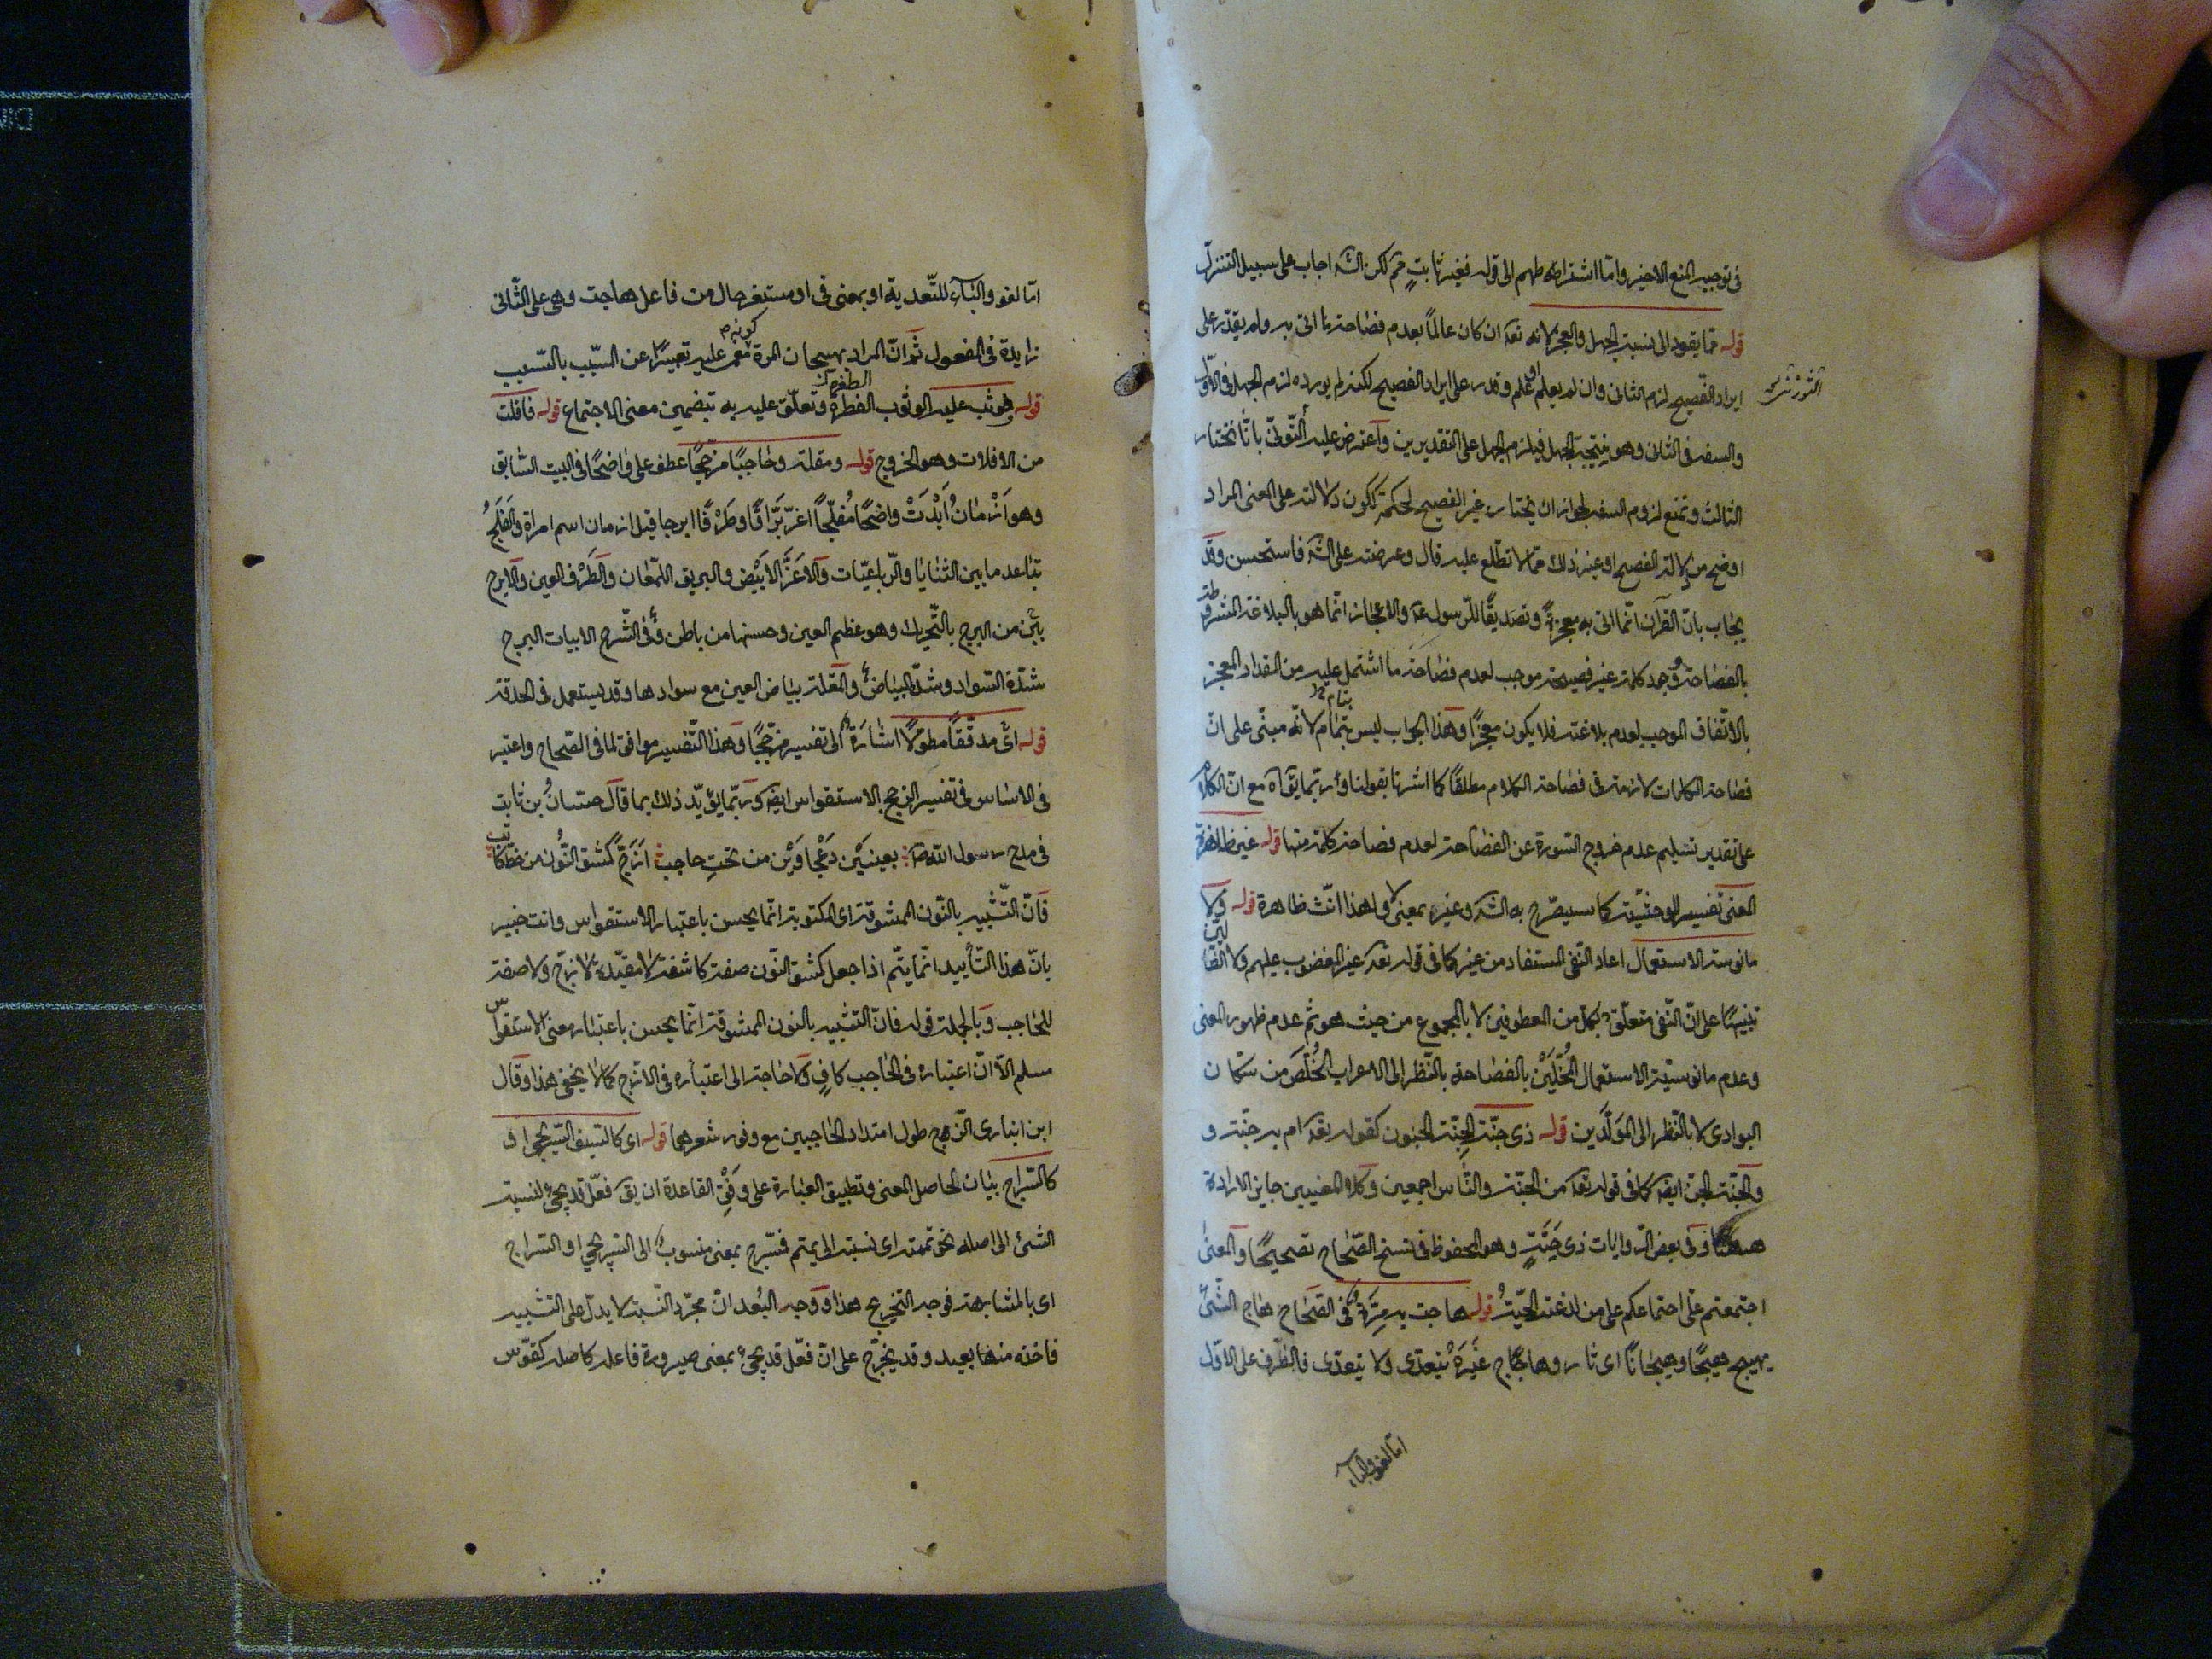 فى توجيه المنع الاخير واما اشتراطه طهم الى قوله فغير ثابت ثم لكن الشه اجاب على سبيل التنزل
قوله مما يقود الى نسبة الجهل والعجز لانه تعه ان كان عالماً بعدم فصاحة ما اتى به ولم يقدر على
ايراد الفصيح لزم الثانى وان لم يعلم او علم وقدر على ايراد الفصيح لكنه لم يورده لزم الجهل فى الاول
والسفه فى الثانى وهو نتيجة الجهل فيلزم الجهل على التقديرين واعترض عليه بانا نختار
الثالث ونمنع لزوم السفه لجواز ان يختار غير الفصيح لحكمة ككون دلالته على المعنى المراد
اوضح من دلالة الفصيح او غير ذلك مما لا نطلع عليه قال وعرضته على الشه فاستحسن وقد
يجاب بان القرآن انما اتى به معجزةً وتصديقًا للرسول عه والاعجاز انما هو بالبلاغة المشروطة
بالفصاحة وجود كلمة غير فصيحة موجب لعدم فصاحة ما اشتمل عليه من المقدار المعجز
بالاتفاق الموجب لعدم بلاغته فلا يكون معجزًا وهذا الجواب ليس بتمام لانه مبنى على ان
فصاحة الكلمات لازمة فى فصاحة الكلام مطلقًا كما اشرنا بقولنا وربما يقاه مع ان الكلام
على تقدير تسليم عدم خروج السورة عن الفصاحة لعدم فصاحة كلمة منها قوله غير ظاهرة
المعنى تفسير للوحشية كما سيصرح به الشه وغير بمعنى لا ولهذا انث ظاهرة قوله ولا
مانوسة الاستعمال اعاد النفى المستفاد من غير كما فى قوله تعه غير المغضوب عليهم ولا الضالين
تنبيهًا على ان النفى متعلق بكل من المعطوفين لا بالمجموع من حيث هو ثم عدم ظهور المعنى
وعدم مانوسية الاستعمال المخلين بالفصاحة بالنظر الى الاعراب الخلص من سكان
البوادى لا بالنظر الى المولدين قوله ذى جنة الجنة الجنون كقوله تعه ام به جنة و
والجنة الجن ايضه كما فى قوله تعه من الجنة والناس اجمعين وكلا المعنيين جايز الارادة
ههنا وفى بعض الروايات ذى حيةٍ وهو المحفوظ فى نسخ الصحاح تصحيحًا والمعنى
اجتمعتم على اجتماعكم على من لدغته الحية قوله هاجت به مرة فى الصحاح هاج الشئ
يهيج هيجًا وهيجانًا اى ثار وهاج غيره يتعدى ولا يتعدى فالظرف على الاول
اما لغو والباء
اما لغو والباء للتعدية او بمعنى فى او مستقر حال من فاعل هاجت وهى على الثانى
زايدة فى المفعول ثم ان المراد بهيجان المرة عليه تعبيرًا عن السبب بالمسبب
قوله فوثب عليه الوثوب الطفرة وتعلق عليه به بتضمين معنى الاجتماع قوله فافلت
من الافلات وهو الخروج قوله ومقلة وحاجبًا مزججًا عطف على واضحًا فى البيت السابق
وهو ازمان ابدت واضحًا مفلجًا اغر براقًا وطرفًا ابرجا قيل ازمان اسم امراة والفلج
تباعد ما بين الثنايا والرباعيات والاغر الابيض والبريق اللمعان والطرف العين والابرج
بين من البرج بالتحريك وهو عظم العين وحسنها من باطن وفى الشرح الابيات البرج
شدة السواد وشدة البياض والمقلة بياض العين مع سوادها وقد يستعمل فى الحدقة
قوله اى مدققًا مطولًا اشارة الى تفسير مزججًا وهذا التفسير موافق لما فى الصحاح واعتبر
فى الاساس فى تفسير الزجج الاستقواس ايضه وربما يؤيد ذلك بما قال حسان بن ثابت
فى مدح رسول الله بعينين دعجاوين من تحت حاجب ازج كمشق النون من خط كاتب
فان التشبيه بالنون الممشوقة اى المكتوبة انما يحسن باعتبار الاستقواس وانت خبير
بان هذا التأييد انما يتم اذا جعل كمشق النون صفة كاشفة لا مقيدة لازج ولا صفة
للحاجب وبالجملة قوله فان التشبيه بالنون الممشوقة انما يحسن باعتبار معنى الاستقواس
مسلم الا ان اعتباره فى الحاجب كافٍ ولا حاجة الى اعتباره فى الازج كما لا يخفى هذا وقال
ابن انبارى الزجج طول امتداد الحاجبين مع وفور شعرهما قوله اى كالسيف السريجى او
كالسراج بيان لحاصل المعنى وتطبيق العبارة على وفق القاعدة ان يقه فعل قد يجئ لنسبة
الشئ الى اصله نحو تممته اى نسبته الى تميم فمسرج بمعنى منسوب الى السريجى او السراج
اى بالمشابهة فوجه التخريج هذا ووجه البعد ان مجرد النسبة لا يدل على التشبيه
فاخذه منها بعيد وقد يخرج على ان فعل قد يجئ بمعنى صيرورة فاعله كاصله كقوس